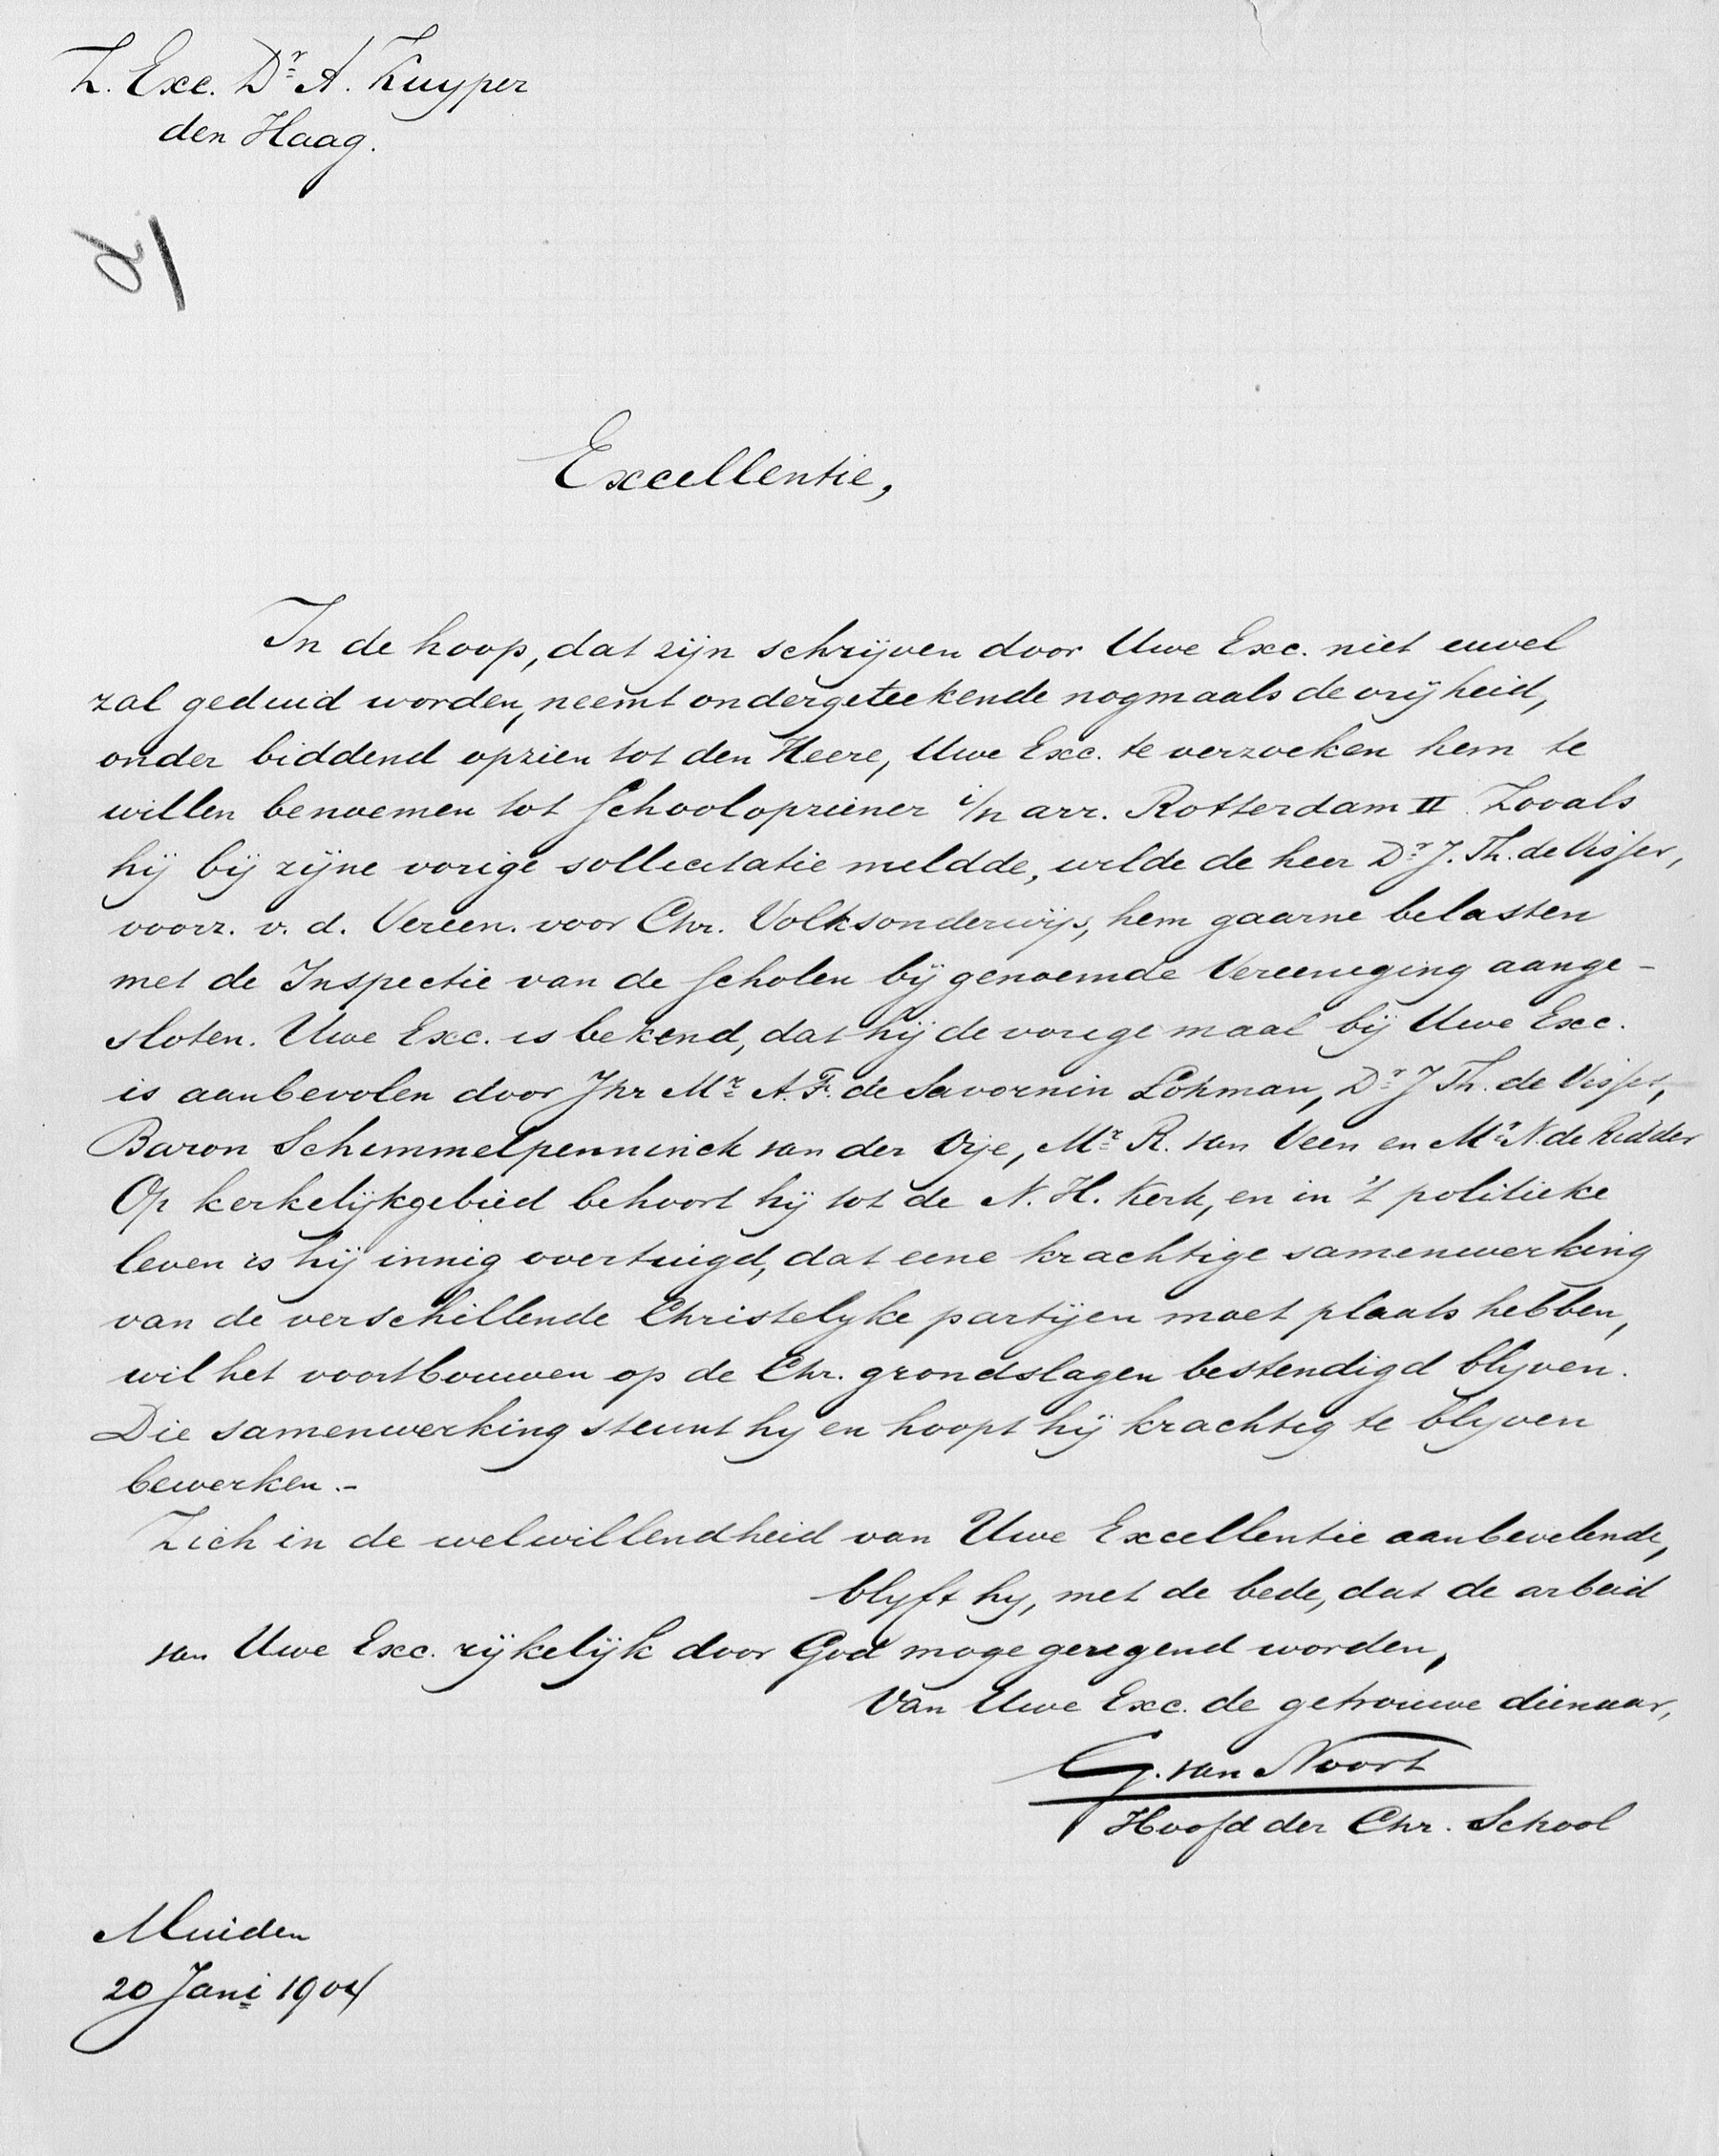 Z. Exc. Dr A. Kuyper
den Haag.
Excellentie,
In de hoop, dat zijn schrijven door Uwe Exc. niet euvel
zal geduid worden, neemt ondergeteekende nogmaals de vrijheid,
onder biddend opzien tot den Heere, Uwe Exc. te verzoeken hem te
willen benoemen tot Schoolopziener i/n arr. Rotterdam II. Zooals
hij bij zijne vorige sollicitatie meldde, wilde de heer Dr J. Th. de Visser,
voorz. v. d. Vereen. voor Chr. Volksonderwijs, hem gaarne belasten
met de Inspectie van de Scholen bij genoemde Vereeniging aange-
sloten. Uwe Exc. is bekend, dat hij de vorige maal bij Uwe Exc.
is aanbevolen door Jhr Mr A. F. de Savornin Lohman, Dr J Th. de Visser,
Baron Schimmelpenninck van der Oije, Mr R. van Veen en Mr N de Ridder
Op kerkelijkgebied behoort hij tot de N. H. Kerk, en in 't politieke
leven is hij innig overtuigd, dat eene krachtige samenwerking
van de verschillende Christelyke partijen moet plaats hebben,
wil het voortbouwen op de Chr. grondslagen bestendigd blyven.
Die samenwerking steunt hy en hoopt hij krachtig te blyven
bewerken.-
Zich in de welwillendheid van Uwe Excellentie aanbevelende,
blyft hy, met de bede, dat de arbeid
van Uwe Exc. rijkelijk door God moge gezegend worden,
Van Uwe Exc. de getrouwe dienaar,
G. van Noort
Hoofd der Chr. School
Muiden
20 Jani 1904